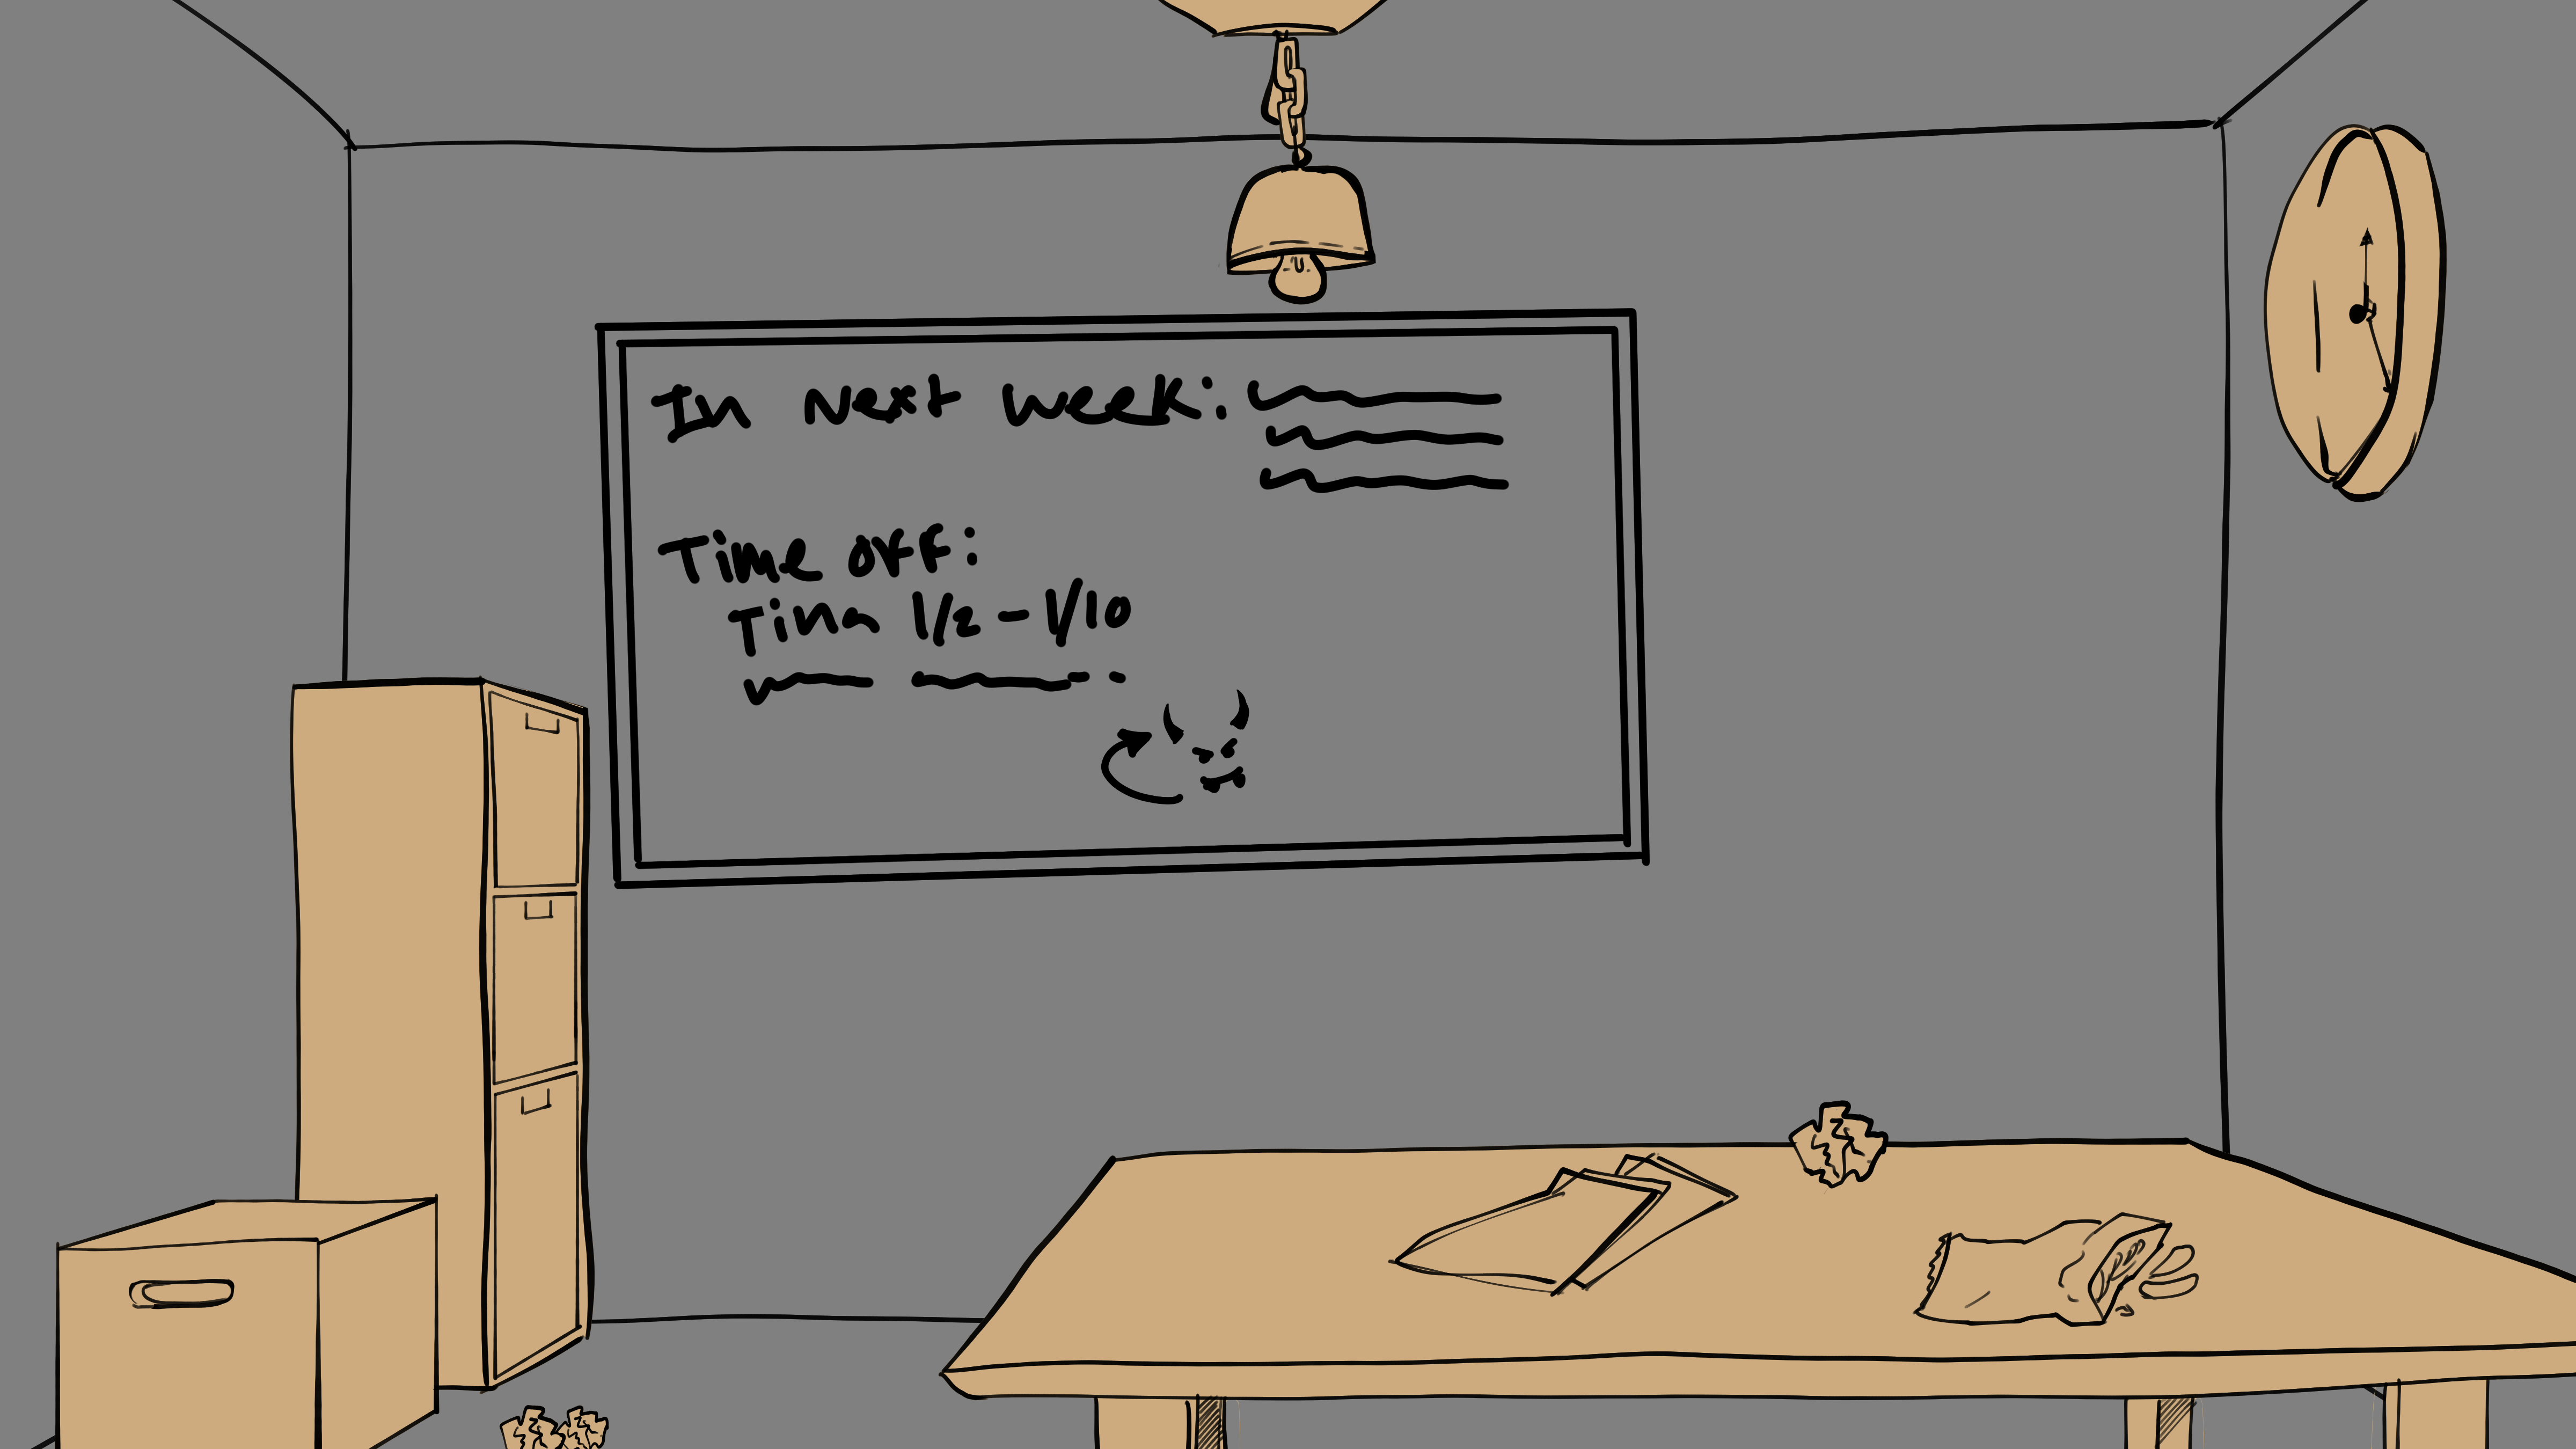 In next week:
Time off:
Tina 1/2 - 1/10